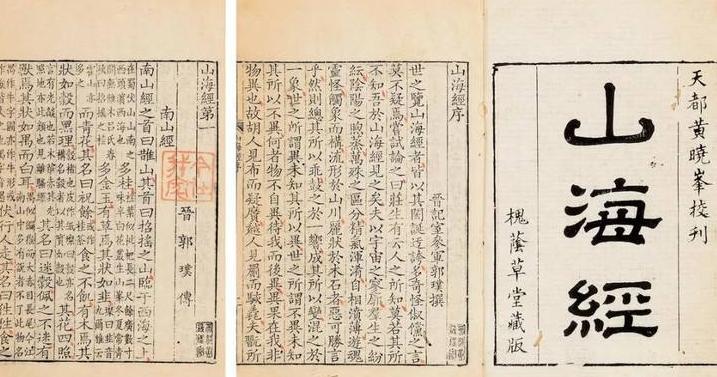 天都黃曉峯挍刊
山海經
槐蔭草堂藏版
山海經序
晉記室參軍郭璞撰
世之覽山海經者皆以其閎誕迂誇多奇怪俶儻之言
莫不疑焉嘗試論之曰莊生有云人之所知莫若其所
不知吾於山海經見之矣夫以宇宙之寥廓羣生之紛
紜陰陽之煦蒸萬殊之區分精氣渾淆自相濆薄遊魂
靈怪觸象而構流形於山川麗狀於木石者惡可勝言
乎然則總其所以乖鼓之於一響成其所以變混之於
一象世之所謂異未知其所以異世之所謂不異未知
其所以不異何者物不自異待我而後異異果在我非
物異也故胡人見布而疑黂越人見罽而駭毳夫翫所
山海經第一
晉郭璞傳
南山經
南山經之首曰䧿山其首曰招搖之山臨于西海之上
在蜀伏山山南之西頭濱西海也多桂桂葉似枇杷長二尺餘廣數寸味辛白花叢生山峯冬夏常青
多金玉有草焉其狀如韭
而青花其名曰祝餘食之不飢有木焉其
狀如榖而黑理其花四照
其名曰迷榖佩之不迷有
獸焉其狀如禺而白耳
伏行人走其名曰狌狌食之